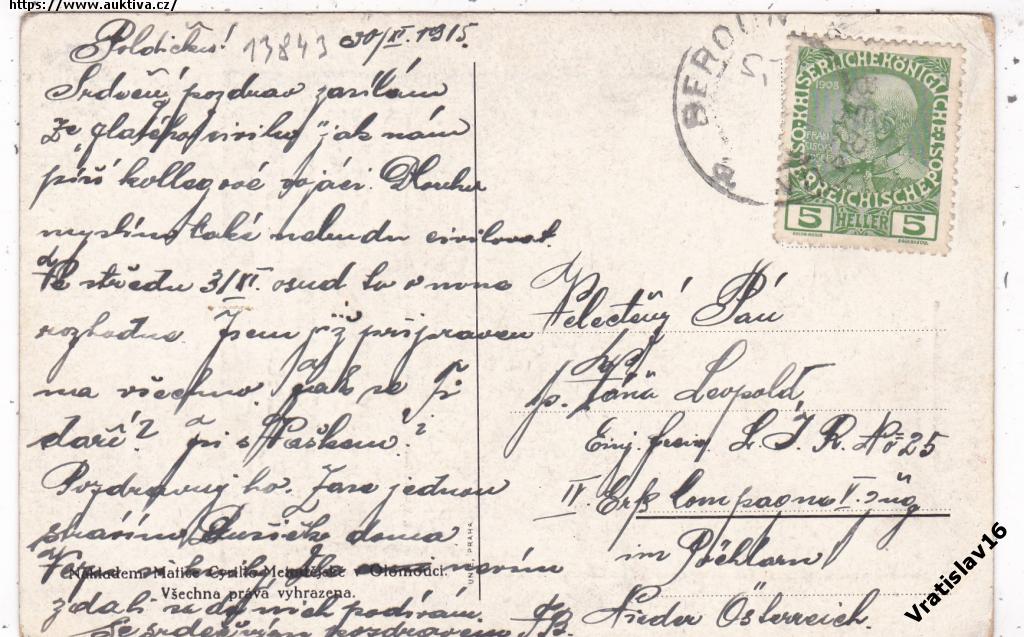 https://www.auktiva.cz/
Poldičku! 13843 30/XI. 1915.
Srdečný pozdrav zasílám
ze „zlatého civilu" jak nám
píší kollegové vojáci. Dlouho
myslím také nebudu civilovat.
Ve středu 3/XI. osud to o mne
rozhodne. Jsem již připraven
na všechno. Jak se Ti
daří? Jsi s Vaškem?
Pozdravuj ho. Zase jednou
strávíme Dušičky doma
nevím
zdali se do nich podívám.
Se srdečným pozdravem
Nákladem Matice Cyrillo-Methodějské v Olomouci.
Všechna práva vyhrazena.
UNIE, PRAHA
BEROUN
KAISERLICHE KÖNIGLICHE ÖSTERREICHISCHE POST
1908
5 HELLER 5
Velectěný Pán
p. Leopold
Einj. freiw. L. I. R. No 25
IV. Ers. Compagnie V. Zug
im Pöchlarn
Nieder Österreich.
Vratislav16